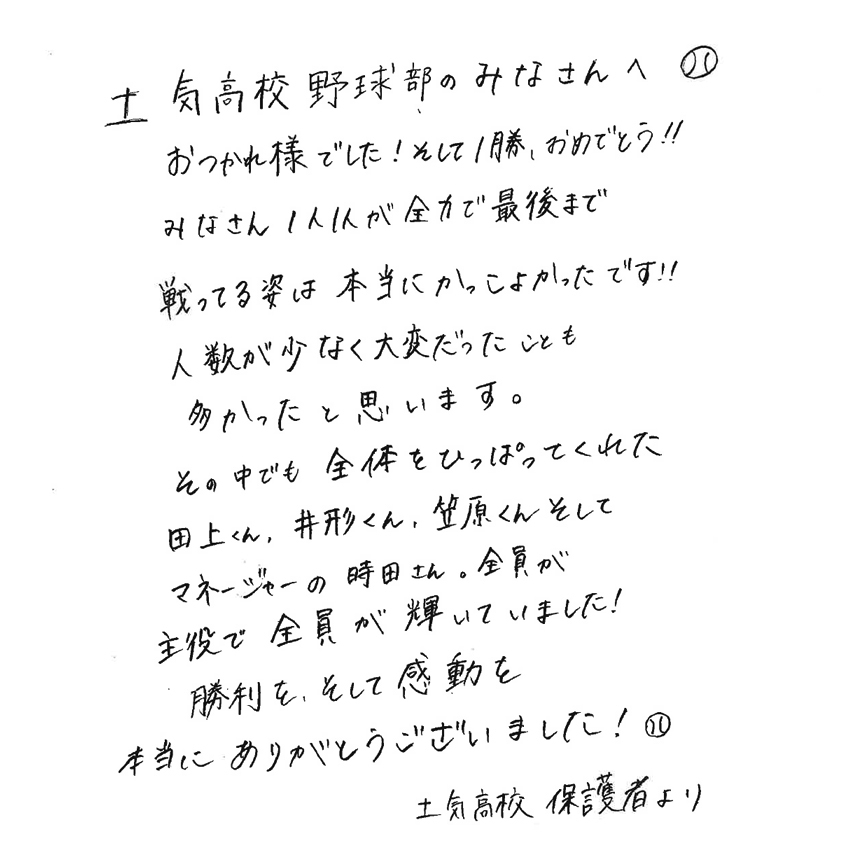 土気高校野球部のみなさんへ
おつかれ様でした!そして1勝、おめでとう!!
みなさん1人1人が全力で最後まで
戦ってる姿は本当にかっこよかったです!!
人数が少なく大変だったことも
多かったと思います。
その中でも全体をひっぱってくれた
田上くん、井形くん、笠原くんそして
マネージャーの時田さん。全員が
主役で全員が輝いていました!
勝利を、そして感動を
本当にありがとうございました!
土気高校 保護者より